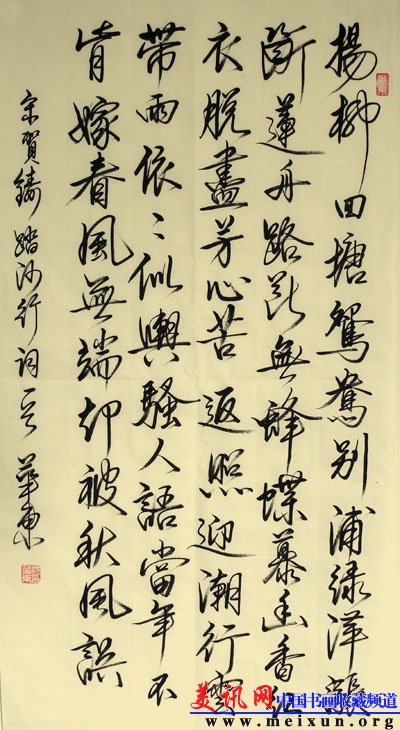 楊柳回塘鴛鴦别浦绿萍漲
断蓮舟路断無蜂蝶慕幽香红
衣脱盡芳心苦返照迎潮行雲
带雨依〻似與騷人語當年不
肯嫁春風無端却被秋風誤
宋賀鑄踏沙行词一首 華東
美讯网 中国书画收藏频道
www.meixun.org